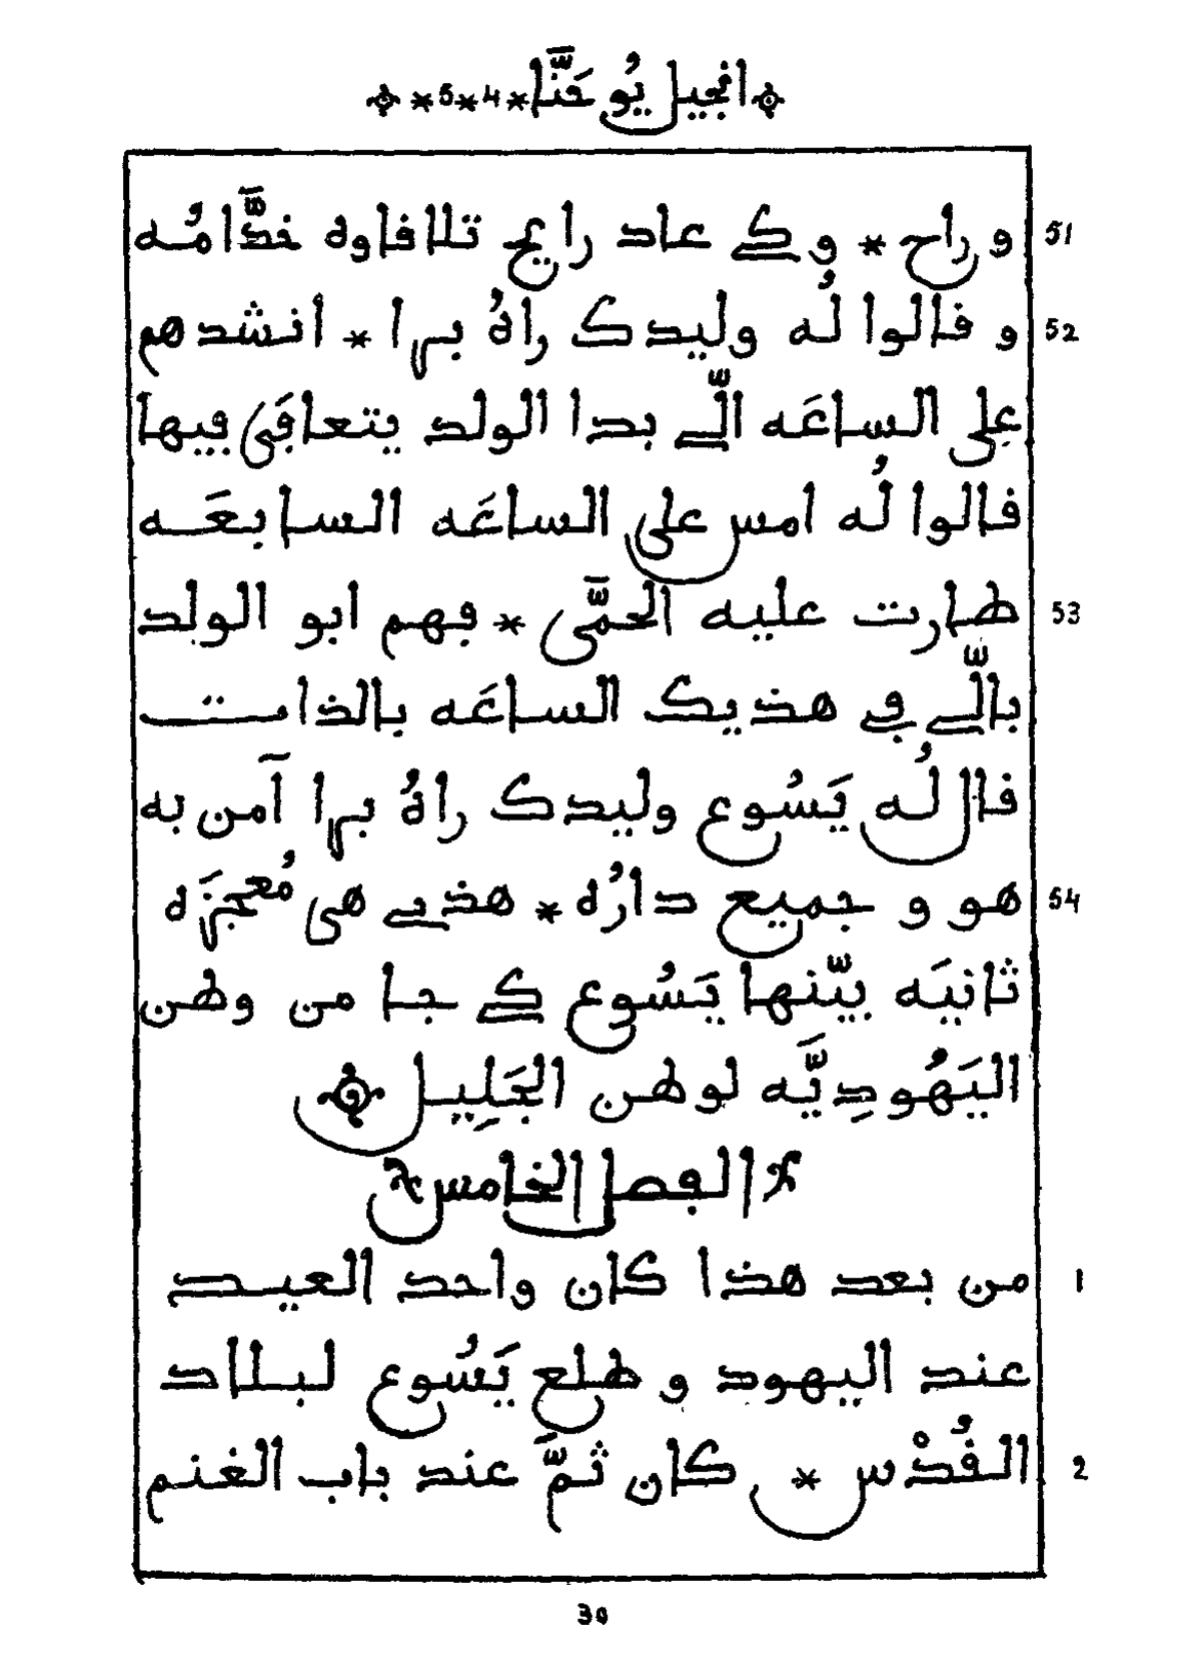 انجيل يُوحَنَّا * 4 * 5 *
51 و راح * وكے عاد رايح تلاقاوه خدَّامُه
52 و قالوا لُه وليدك راهُ برا * انشدهم
على الساعَه الّے بدا الولد يتعافَى فيها
قالوا لُه امس على الساعَه السابعَه
53 طارت عليه الحمَّى * فهم ابو الولد
بالّے في هذيك الساعَه بالذات
قال لُه يَسُوع وليدك راهُ برا آمن به
54 هو و جميع دارُه * هذے هى مُعجزَه
ثانيَه بيّنها يَسُوع كے جا من وطن
اليَهُودِيَّه لوطن الجَلِيل
الفصل الخامس
1 من بعد هذا كان واحد العيد
عند اليهود و طلع يَسُوع لبلاد
2 القُدْس * كان ثمَّ عند باب الغنم
30